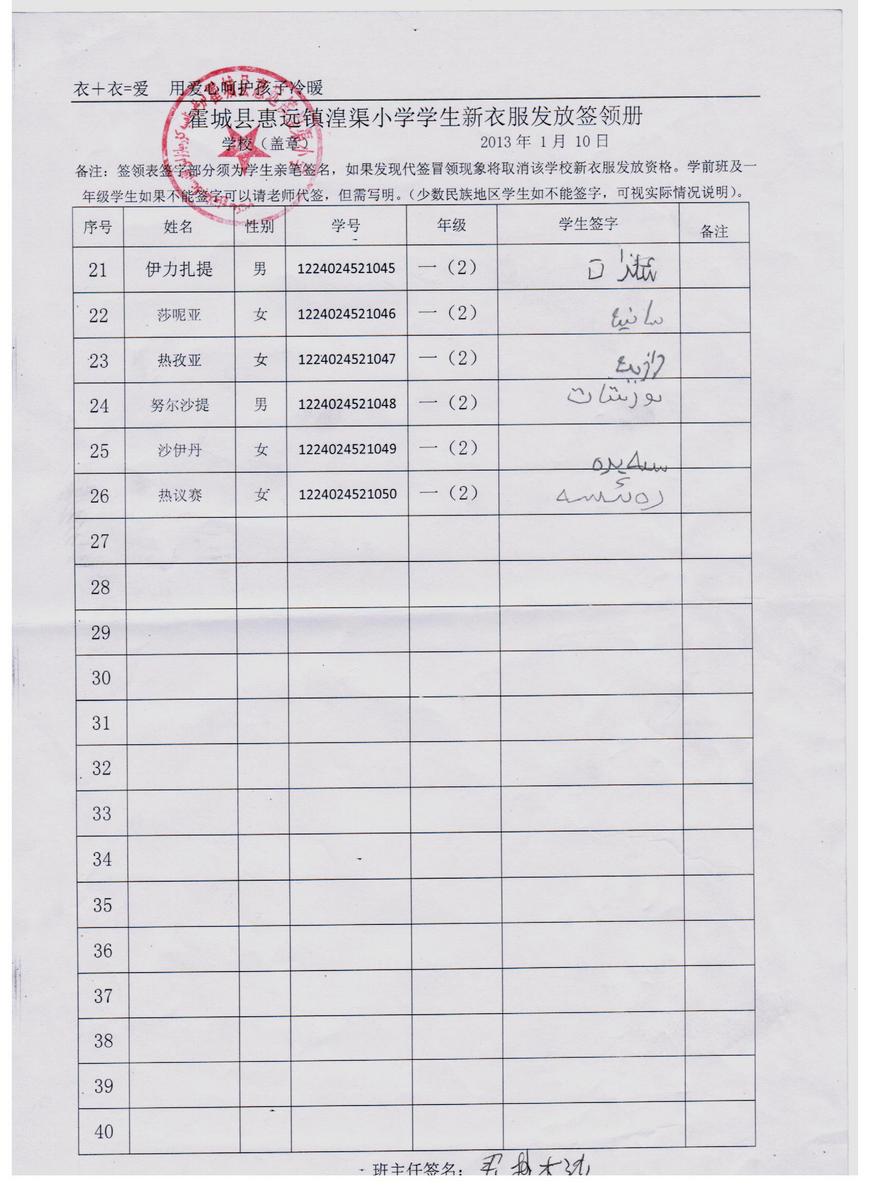 衣＋衣=爱 用爱心呵护孩子冷暖
霍城县惠远镇湟渠小学学生新衣服发放签领册
学校（盖章） 2013 年 1 月 10 日
备注：签领表签字部分须为学生亲笔签名，如果发现代签冒领现象将取消该学校新衣服发放资格。学前班及一
年级学生如果不能签字可以请老师代签，但需写明。（少数民族地区学生如不能签字，可视实际情况说明）。
序号 姓名 性别 学号 年级 学生签字 备注
21 伊力扎提 男 1224024521045 一（2）
22 莎呢亚 女 1224024521046 一（2） سانىيە
23 热孜亚 女 1224024521047 一（2） رازىيە
24 努尔沙提 男 1224024521048 一（2）
25 沙伊丹 女 1224024521049 一（2）
26 热议赛 女 1224024521050 一（2）
27
28
29
30
31
32
33
34
35
36
37
38
39
40
班主任签名：